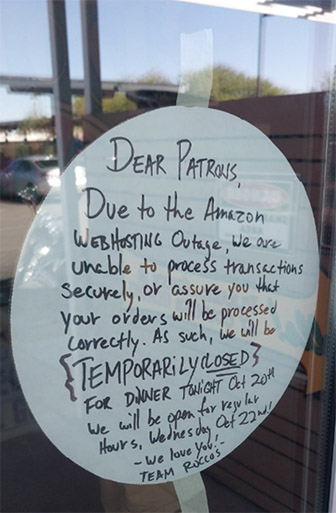 DEAR PATRONS,
Due to the Amazon
WEBHOSTING Outage, We are
unable to process transactions
securely, or assure you that
your orders will be processed
correctly. As such, we will be
{TEMPORARILY CLOSED}
FOR DINNER TONIGHT Oct 20th
We will be open for regular
Hours, Wednesday Oct 22nd!
- We love you! -
TEAM ROCCO'S